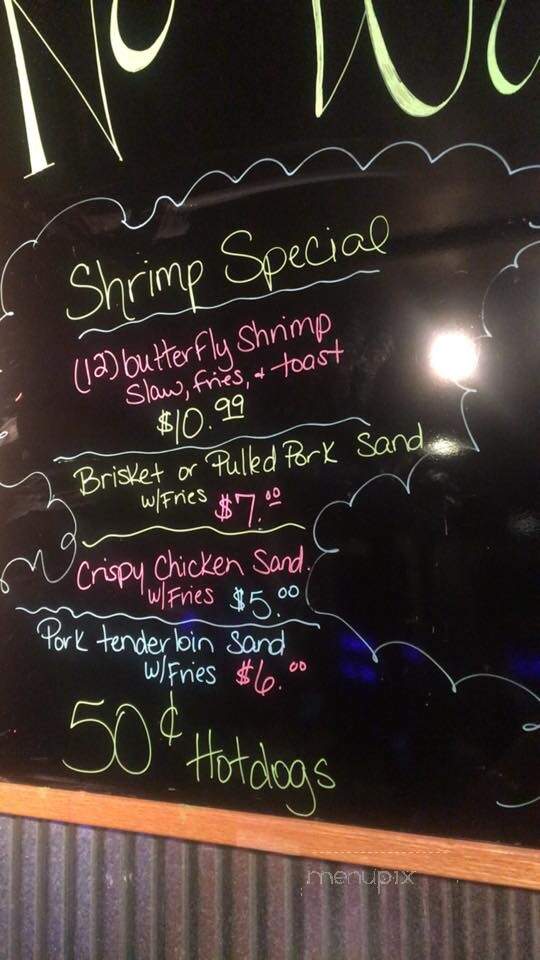 Shrimp Special
(12) butterfly Shrimp
Slaw, fries, + toast
$10.99
Brisket or Pulled Pork Sand
w/Fries $7.00
Crispy Chicken Sand.
w/Fries $5.00
Pork tenderloin Sand
w/Fries $6.00
50¢ Hotdogs
menupix